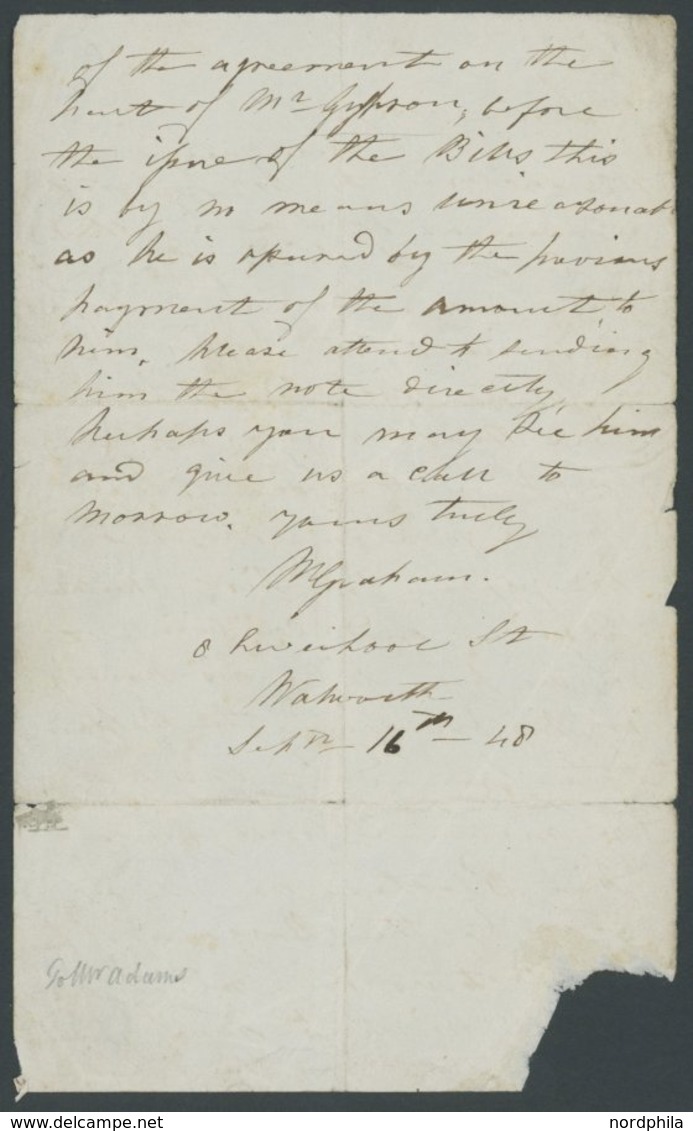 of the agreement on the
part of Mr before
the issue of the Bills this
is by no means unreasonab
as he is by the previous
payment of the amount to
him, please attend to sending
him the note directly
perhaps you may see him
and give us a call to
morrow. yours truly
M Graham.
8 Liverpool St
Walworth
Septr 16th - 48
To Mr Adams
delcampe.net
nordphila